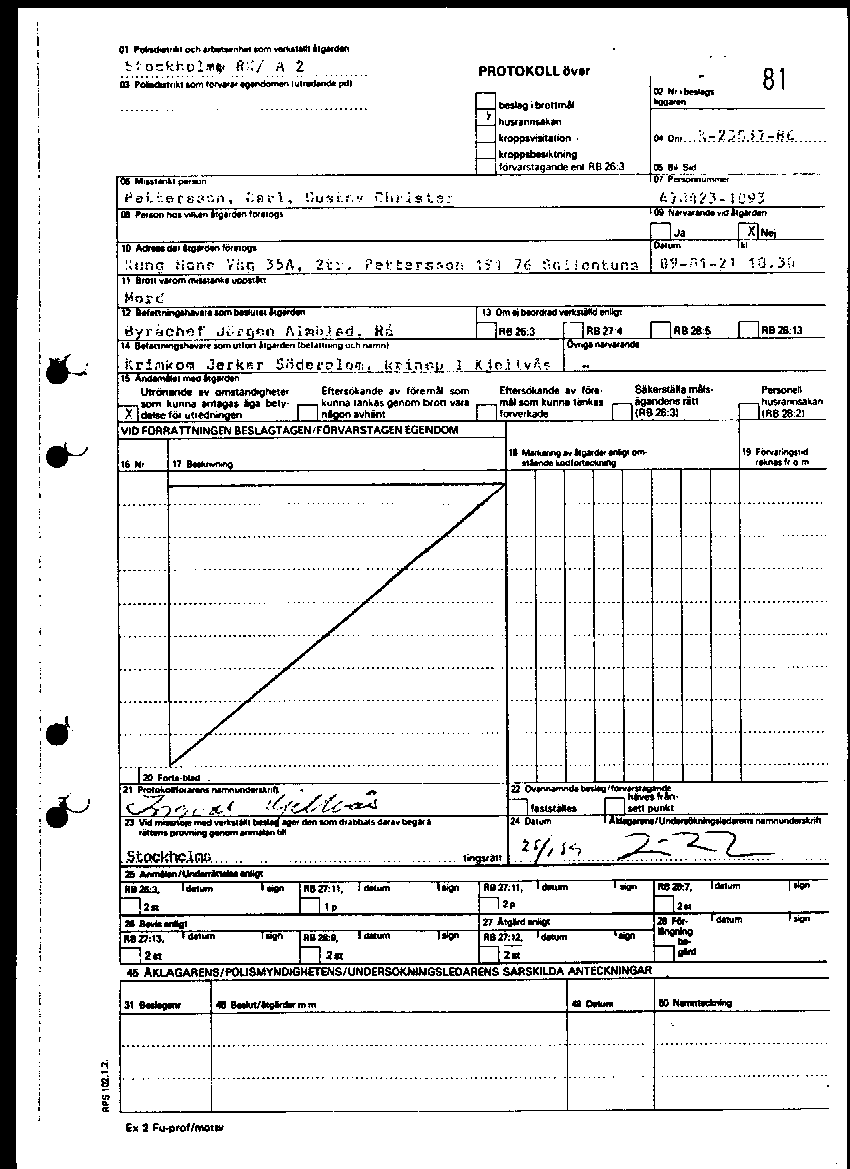 01 Polisdistrikt och arbetsenhet som verkställt åtgärden
Stockholms RK/ A 2
03 Polisdistrikt som förvarar egendomen (utredande pd)
PROTOKOLL över
81
02 Nr i beslags
liggaren
beslag i brottmål
husrannsakan
kroppsvisitation
kroppsbesiktning
förvarstagande enl RB 26:3
04 Dnr
05 Bil Sid
06 Misstänkt person
07 Personnummer
Pettersson, Carl, Gustav Christer
08 Person hos vilken åtgärden företogs
09 Närvarande vid åtgärden
Ja
X Nej
10 Adress där åtgärden företogs
Datum
kl
Kung Hans Väg 35A, 2tr. Pettersson 191 76 Sollentuna
89-01-21 10.30
11 Brott varom misstanke uppstått
Mord
12 Befattningshavare som beslutat åtgärden
13 Om ej beordrad verkställd enligt
Byråchef Jörgen Almblad, RÅ
RB 26:3
RB 27:4
RB 28:5
RB 28:13
14 Befattningshavare som utfört åtgärden (befattning och namn)
Övriga närvarande
Krimkom Jerker Söderblom, krinsp I Kjellvås
-
15 Ändamålet med åtgärden
X Utrönande av omständigheter
som kunna antagas äga bety-
delse för utredningen
Eftersökande av föremål som
kunna tänkas genom brott vara
någon avhänt
Eftersökande av före-
mål som kunna tänkas
förverkade
Säkerställa måls-
ägandens rätt
(RB 26:3)
Personell
husrannsakan
(RB 28:2)
VID FÖRRÄTTNINGEN BESLAGTAGEN/FÖRVARSTAGEN EGENDOM
16 Nr
17 Beskrivning
18 Markering av åtgärder enligt om-
stående kodförteckning
19 Förvaringstid
räknas fr o m
20 Forts-blad
21 Protokollförarens namnunderskrift
Ingvar Kjellvås
22 Ovannämnda beslag/förvarstagande
fastställes
häves från-
sett punkt
23 Vid missnöje med verkställt beslag äger den som drabbats därav begära
rättens prövning genom anmälan till
24 Datum
Åklagarens/Undersökningsledarens namnunderskrift
Stockholms
tingsrätt
25 Anmälan/Underrättelse enligt
RB 26:3, datum sign
2 st
RB 27:11, datum sign
1 p
RB 27:11, datum sign
2 p
RB 28:7, datum sign
2 st
26 Bevis enligt
27 Åtgärd enligt
28 För-
längning
be-
gärd
datum sign
RB 27:13, datum sign
2 st
RB 28:9, datum sign
2 st
RB 27:12, datum sign
2 st
45 ÅKLAGARENS/POLISMYNDIGHETENS/UNDERSÖKNINGSLEDARENS SÄRSKILDA ANTECKNINGAR
31 Beslagsnr
48 Beslut/åtgärder m m
49 Datum
50 Namnteckning
RPS 102.1.2.
Ex 2 Fu-prot/motsv